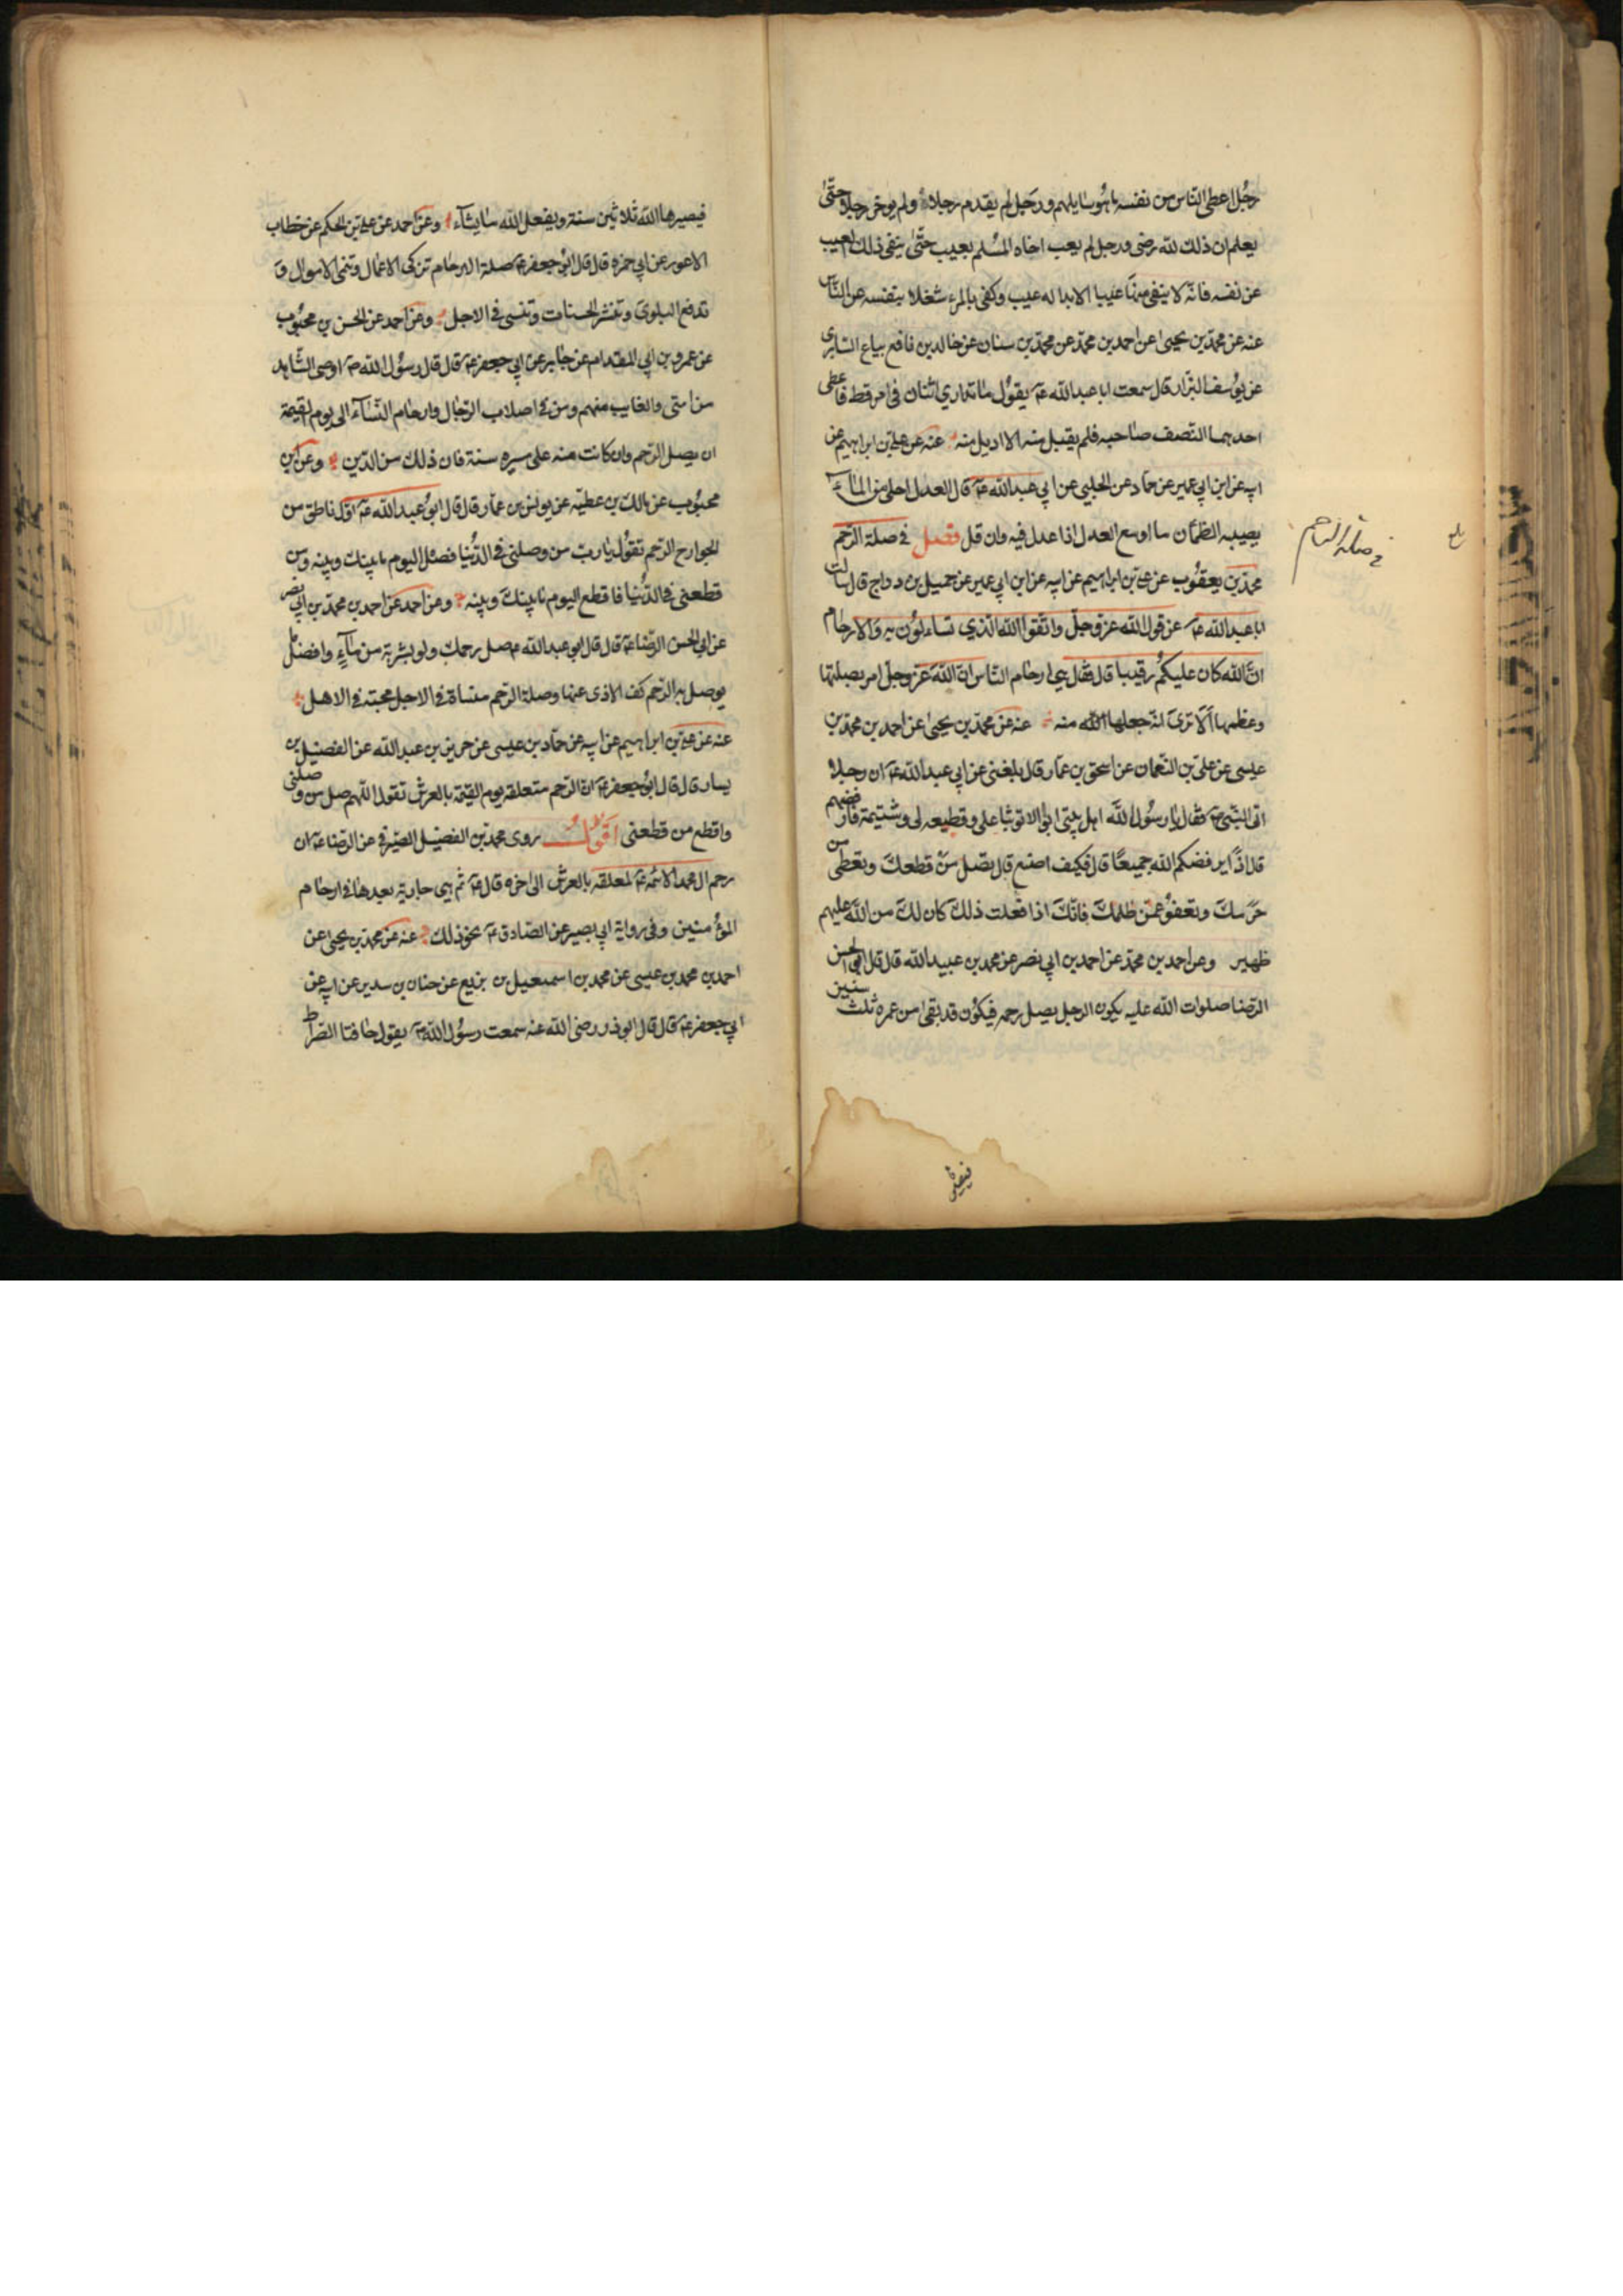 رجُل اعطى الناس من نفسه ما هُو سايلهم ورَجل لم يقدم رجلاً ولم يوخر رجلا حتّىٰ
يعلم ان ذلك لله رضى ورجل لم يعب اخاه المسُلم بعيب حتّىٰ ينفى ذلك العيب
عن نفسه فانّه لا ينفى منها عيبا الا بدا له عيب وكفى بالمرء شغلا بنفسه عن النّاس
عنه عن محمدّ بن يحيى عن احمد بن محمدّ عن محمدّ بن سنان عن خالد بن نافع بياع السّابرى
عن يوُسف البزّاز قال سمعت ابا عبد الله عۤ يقوُل ما تدارى اثنان فى امر قط فاعطى
احدهما النّصف صاحبه فلم يقبل منه الا اديل منه عنه عن على بن ابراهيم عن
ابيه عن ابن ابي عمير عن حماد عن الحلبي عن ابي عبد الله عۤ قال العدل احلى من الماۤء
يصيبه الظمآن ما اوسع العدل اذا عدل فيه وان قل فصل فى صلة الرّحم
محمدّ بن يعقوُب عن على بن ابراهيم عن ابيه عن ابن ابي عمير عن جميل بن دراج قال سالت
ابا عبد الله عۤ عن قول الله عزّ وجلّ واتّقوا الله الّذي تساءلوُن به وَالارحام
انّ الله كان عليكمُ رقيبا قال فقال هي ارحام النّاس انّ الله عزّ وجلّ امر بصلتها
وعظمها اَلا ترىٰ انّه جعلها الله منه عنه عن محمدّ بن يحيىٰ عن احمد بن محمدّ بن
عيسى عن على بن النّعمان عن اسحق بن عمّار قال بلغنى عن ابي عبد الله عۤ ان رجلا
اتى النّبىّ صۤ فقال يا رسوُل اللّه اهل بيتى ابوا الا توثبا على وقطيعه لى وشتيمة فارفضهم
قال اذاً يرفضكم الله جميعًا قال فكيف اصنع قال تصل منَ قطعك وتعطى من
حرّمك وتعفوُ عمّن ظلمك فانّك اذا فعلت ذلك كان لك من الله عليهم
ظهير وعن احمد بن محمدّ عن احمد بن ابي نصر عن محمد بن عبيد الله قال قال ابو الحسن
الرّضا صلوات الله عليه يكون الرجل يصل رحمه فيكوُن قد بقى من عمره ثلث سنين
في صلة الارحام
فيصيرها
فيصيرها الله ثلاثين سنة ويفعل الله ما يشآء وعن احمد عن على بن الحكم عن خطاب
الاعور عن ابي حمزه قال قال ابوُ جعفر عۤ صلة الارحام تزكى الاعمال وتنمى الاموال و
تدفع البلوى وتيسر الحسنات وتنسى فى الاجل وعن احمد عن الحسن بن محبوُب
عن عمرو بن ابي المقدام عن جابر عن ابي جعفر عۤ قال قال رسوُل الله صۤ اوصى الشّاهد
من امتى والغايب منهم ومن فى اصلاب الرّجال وارحام النّسآء الى يوم القيمة
ان يصل الرّحم وان كانت منه على مسيره سنة فان ذلك من الدّين وعن ابن
محبوُب عن مالك بن عطيّه عن يونس بن عمّار قال قال ابوُ عبد الله عۤ اوّل ناطق من
الجوارح الرّحم تقوُل يا ربّ من وصلنى فى الدّنيا فصل اليوم ما بينك وبينه ومن
قطعنى فى الدّنيا فاقطع اليوم ما بينك وبينه وعن احمد عن احمد بن محمدّ بن ابى نصر
عن ابي الحسن الرّضا عۤ قال قال ابو عبد الله عۤ صل رحمك ولو بشربة من مآءٍ وافضل ما
يوصل به الرّحم كف الاذى عنها وصلة الرّحم منساة فى الاجل محبته فى الاهل
عنه عن على بن ابراهيم عن ابيه عن حمّاد بن عيسى عن حريز بن عبد الله عن الفضيل بن
يسار قال قال ابوُ جعفر عۤ انّ الرّحم متعلقه يوم القيمة بالعرش تقول اللّهم صل من وصلنى
واقطع من قطعنى اقَولُ روى محمد بن الفضيل الصّيرفى عن الرّضا عۤ ان
رحم ال محمد الائمّه عۤ لمعلقه بالعرش الى اخره قال عۤ ثم هى جارية بعدها فى ارحام
المؤمنين وفى رواية ابي بصير عن الصّادق عۤ نحو ذلك عنه عن محمد بن يحيى عن
احمد بن محمد بن عيسى عن محمد بن اسمعيل بن بزيع عن حنان بن سدير عن ابيه عن
ابي جعفر عۤ قال قال ابو ذر رضى الله عنه سمعت رسوُل الله صۤ يقول حافتا الصّراط